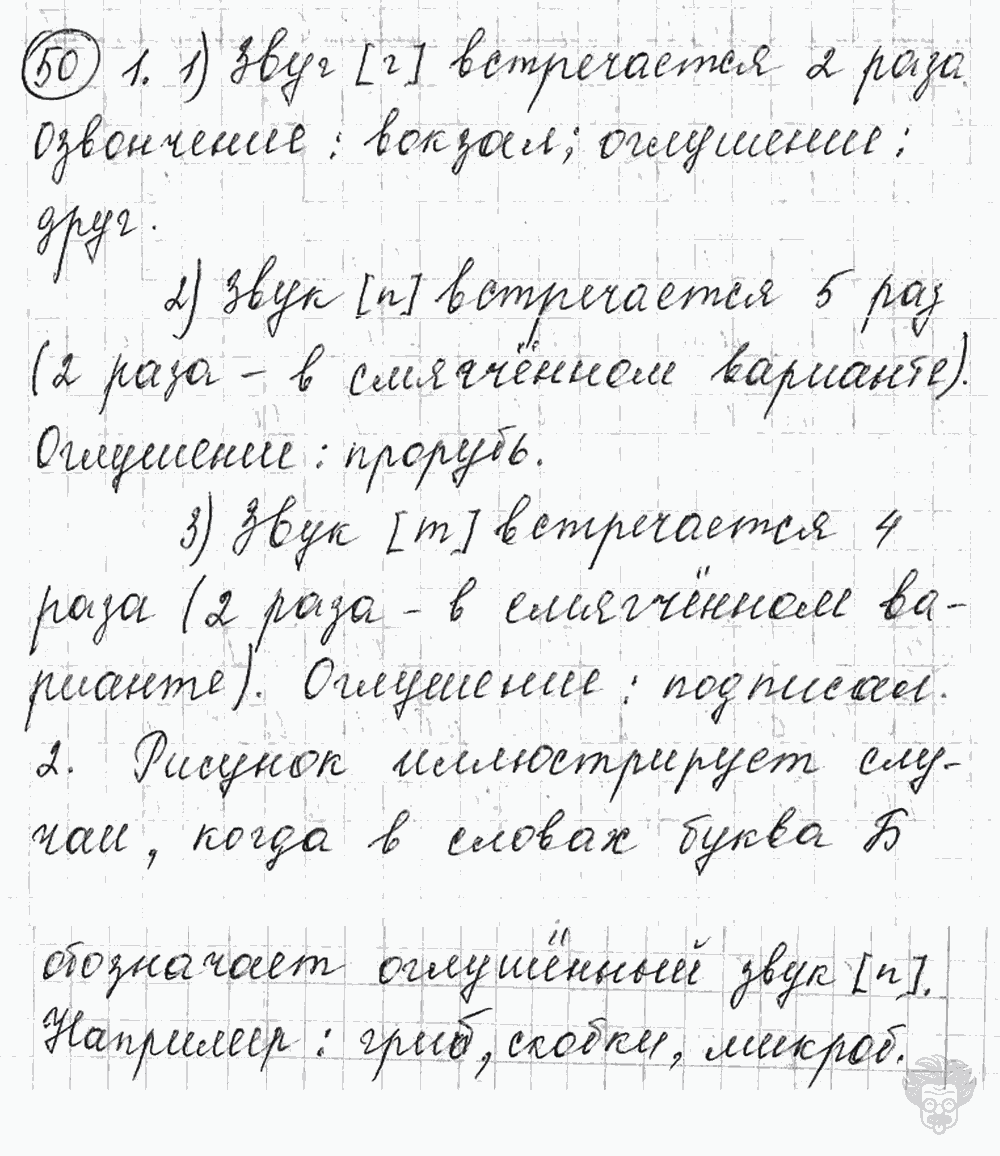 50 1. 1) Звуг [г] встречается 2 раза.
Озвончение: вокзал; оглушение:
друг.
2) Звук [п] встречается 5 раз
(2 раза – в смягчённом варианте).
Оглушение: прорубь.
3) Звук [т] встречается 4
раза (2 раза – в смягчённом ва-
рианте). Оглушение: подписал.
2. Рисунок иллюстрирует слу-
чаи, когда в словах буква Б
обозначает оглушённый звук [п].
Например: гриб, скобки, микроб.